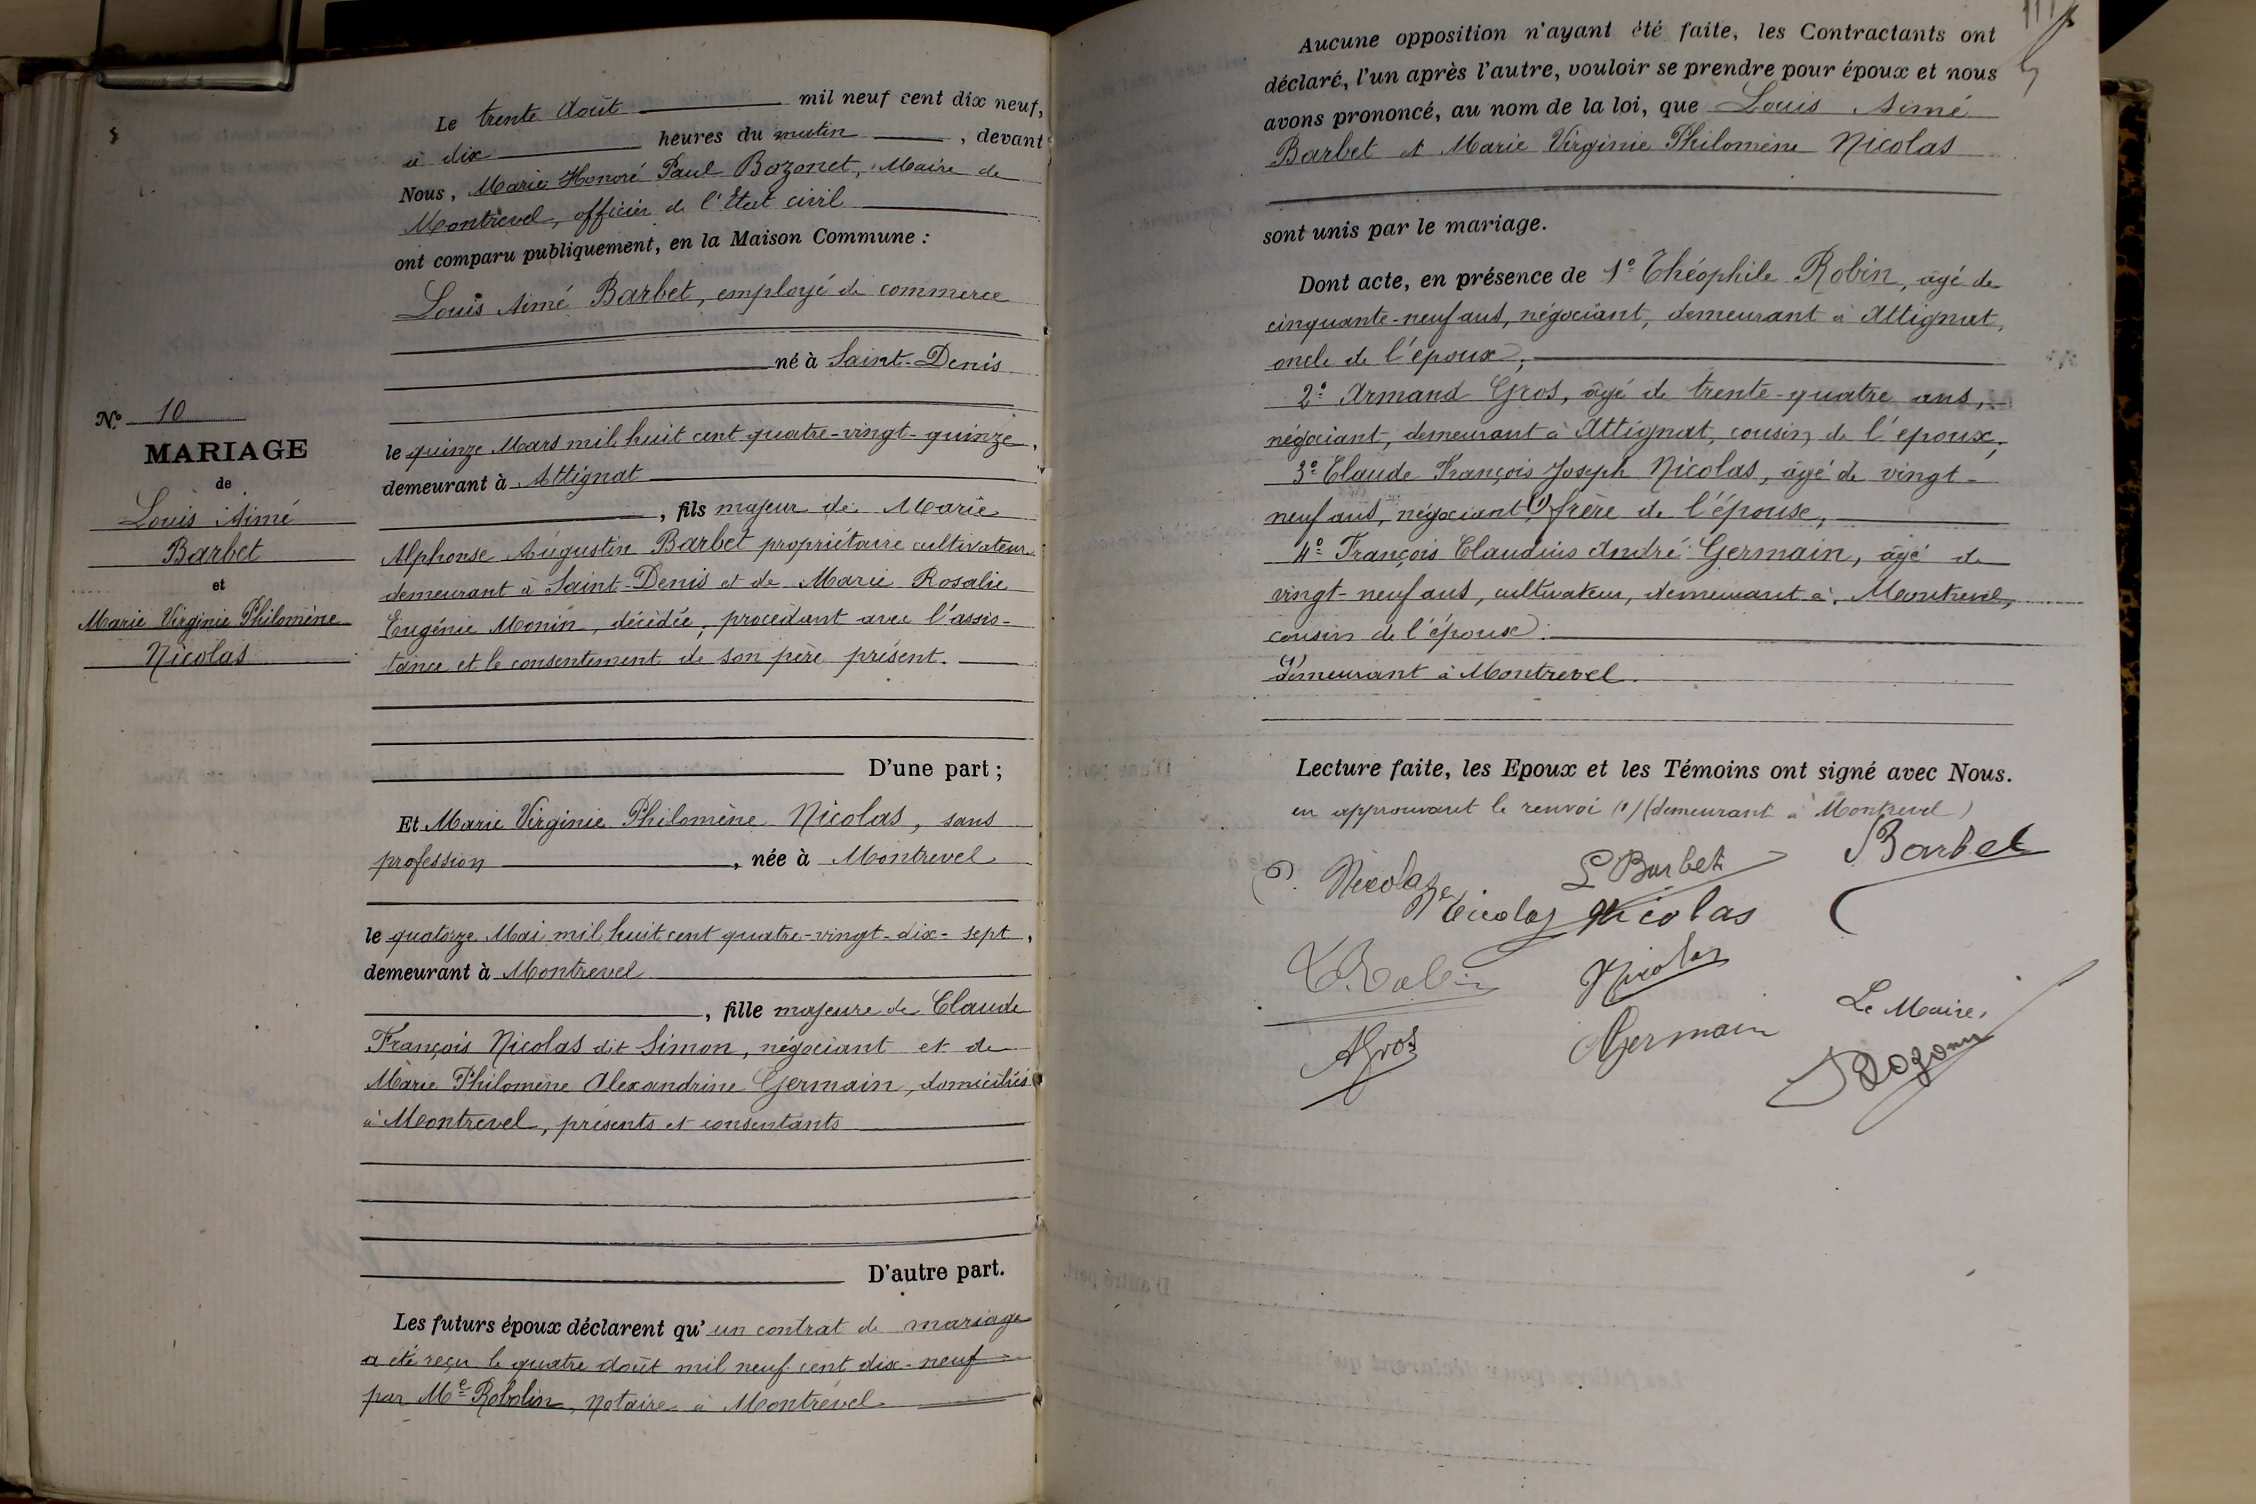 Le trente Août mil neuf cent dix neuf,
à dix heures du matin, devant
Nous, Marie Honoré Paul Bozonet, Maire de
Montrevel, officier de l'Etat civil
ont comparu publiquement, en la Maison Commune :
Louis Aimé Barbet, employé de commerce
né à Saint-Denis
le quinze Mars mil huit cent quatre-vingt-quinze,
demeurant à Attignat
, fils majeur de Marie
Alphonse Augustin Barbet propriétaire cultivateur
demeurant à Saint-Denis et de Marie Rosalie
Eugénie Monin, décédée, procédant avec l'assis-
tance et le consentement de son père présent.
D'une part ;
Et Marie Virginie Philomène Nicolas, sans
profession, née à Montrevel
le quatorze Mai mil huit cent quatre-vingt-dix-sept,
demeurant à Montrevel
, fille majeure de Claude
François Nicolas dit Simon, négociant et de
Marie Philomène Alexandrine Germain, domiciliés
à Montrevel, présents et consentants
D'autre part.
Les futurs époux déclarent qu'un contrat de mariage
a été reçu le quatre Août mil neuf cent dix-neuf
par Me Robolin, Notaire à Montrevel
N° 10
MARIAGE
de
Louis Aimé
Barbet
et
Marie Virginie Philomène
Nicolas
Aucune opposition n'ayant été faite, les Contractants ont
déclaré, l'un après l'autre, vouloir se prendre pour époux et nous
avons prononcé, au nom de la loi, que Louis Aimé
Barbet et Marie Virginie Philomène Nicolas
sont unis par le mariage.
Dont acte, en présence de 1° Théophile Robin, âgé de
cinquante-neuf ans, négociant, demeurant à Attignat,
oncle de l'époux,
2° Armand Gros, âgé de trente-quatre ans,
négociant, demeurant à Attignat, cousin de l'époux,
3° Claude François Joseph Nicolas, âgé de vingt-
neuf ans, négociant, (1) frère de l'épouse,
4° François Claudius André Germain, âgé de
vingt-neuf ans, cultivateur, demeurant à Montrevel,
cousin de l'épouse.
(1) demeurant à Montrevel
Lecture faite, les Epoux et les Témoins ont signé avec Nous.
en approuvant le renvoi (1) (demeurant à Montrevel)
Nicolas L Barbet Barbet
Nicolas Nicolas
Robin Nicolas
Le Maire,
AGros Germain
Bozonet